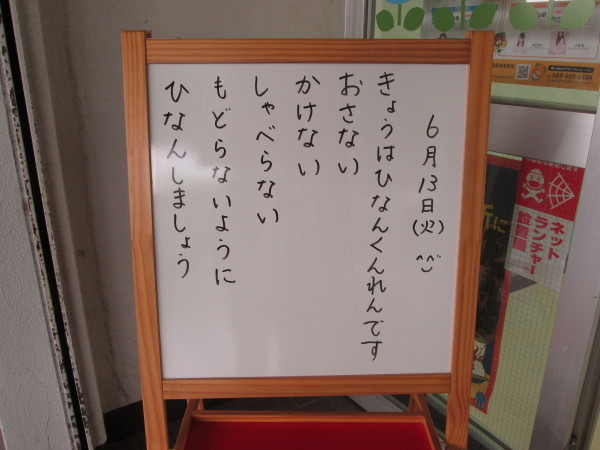 6月13日(火)^^
きょうはひなんくんれんです
おさない
かけない
しゃべらない
もどらないように
ひなんしましょう
ネット
ランチャー
設置園